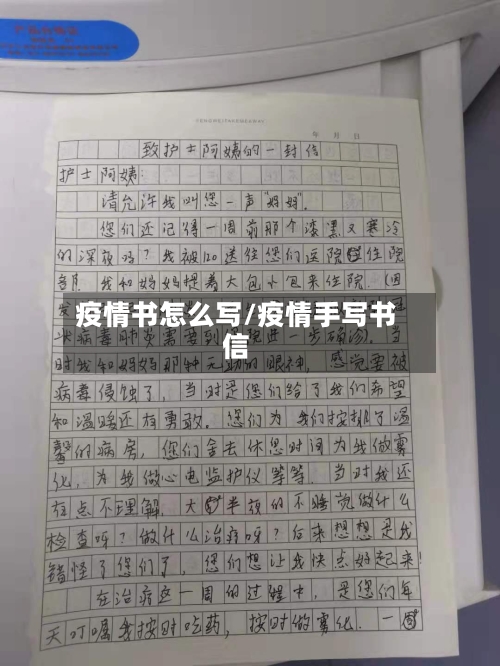 年 月 日
致护士阿姨的一封信
护士阿姨:
请允许我叫您一声"妈妈".
您们还记得一周前那个漆黑又寒冷
的深夜吗?我被120送往您们医院住院
部.我和妈妈提着大包小包来住院.(因
疫情书怎么写/疫情手写书
信
状病毒肺炎需要到医院进一步确诊.当
时我和妈妈那种无助的眼神,感觉要被
病毒侵蚀了,当时是您们给了我们希望
和温暖还有勇敢.您们为我们安排了温
馨的病房,您们舍去休息时间为我做雾
化,为我做心电监护仪等等.当时我还
有点不理解.大半夜的不睡觉做什么
检查呀?做什么治疗呀?后来想想是我
错怪了您们了,您们想让我快点好起来!
在治疗这一周的过程中,是您们每
天叮嘱我按时吃药,按时做雾化.一